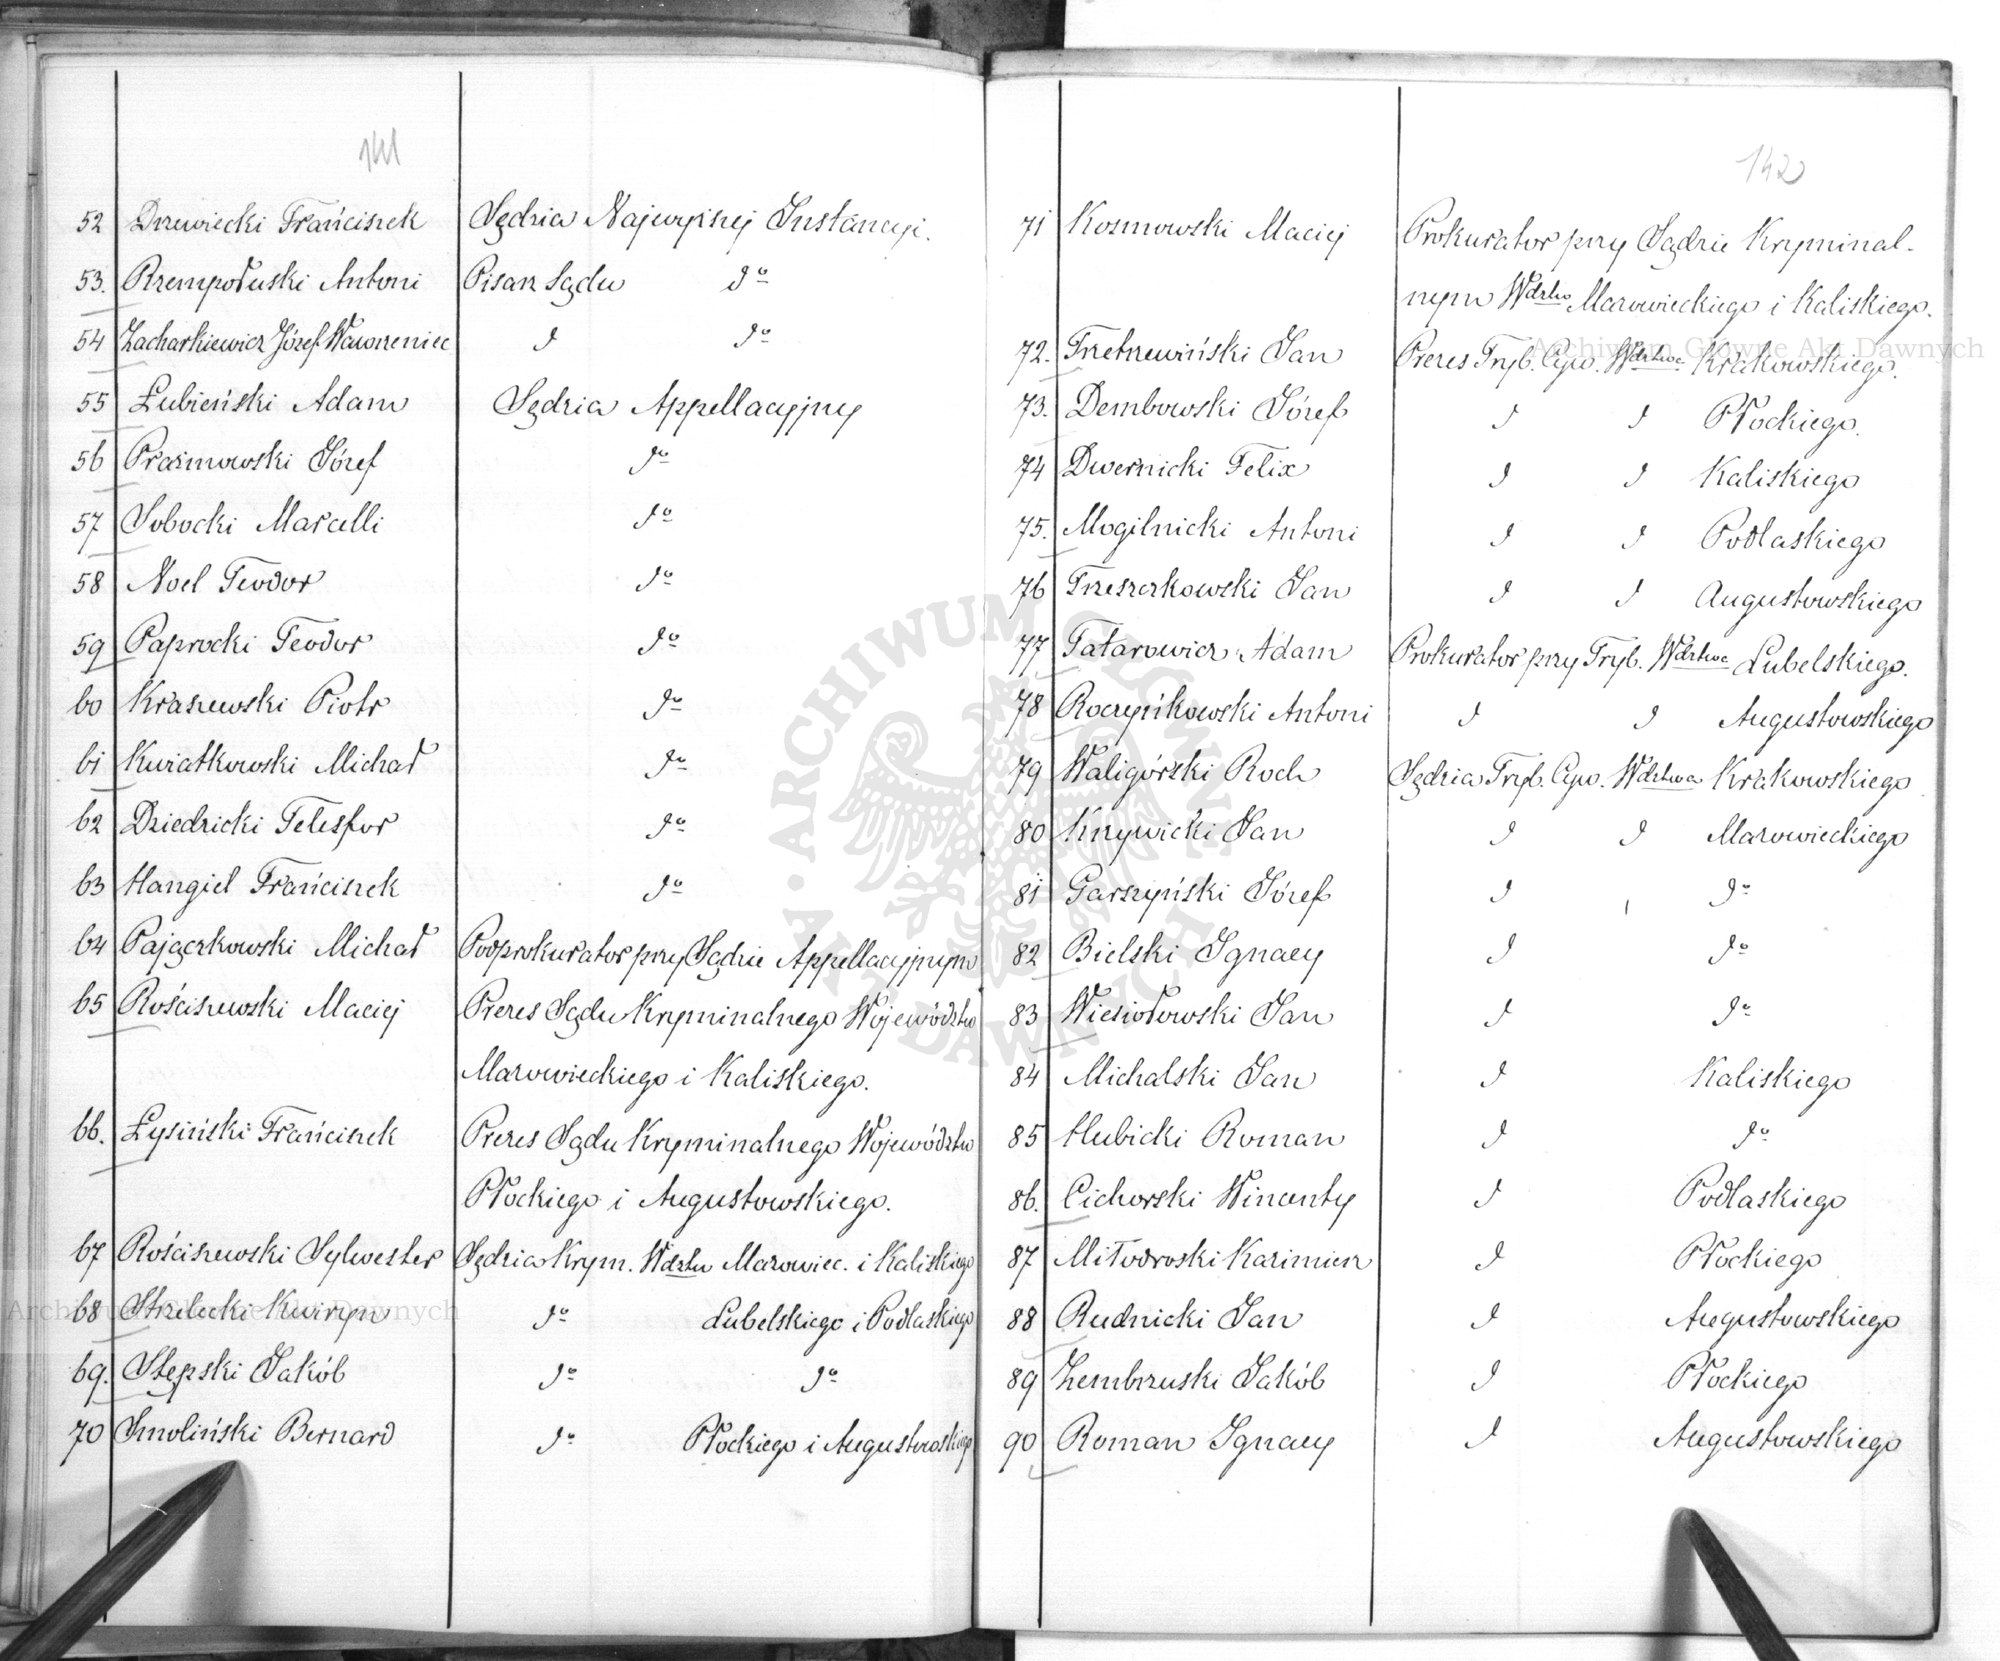 141
52 Drzewiecki Franciszek Sędzia Najwyższej Instancyi.
53. Rzempołuski Antoni Pisarz Sądu do
54 Zacharkiewicz Józef Wawrzeniec d do
55 Łubieński Adam Sędzia Appellacyjny
56 Prażmowski Józef do
57 Sobocki Marcelli do
58 Noel Teodor do
59 Paprocki Teodor do
60 Kraszewski Piotr do
61 Kwiatkowski Michał do
62 Dziedzicki Telesfor do
63 Hangiel Franciszek do
64 Pajączkowski Michał Podprokurator przy Sądzie Appellacyjnym
65 Rościszewski Maciej Prezes Sądu Kryminalnego Województw
Mazowieckiego i Kaliskiego.
66. Łysiński Franciszek Prezes Sądu Kryminalnego Województw
Płockiego i Augustowskiego.
67 Rościszewski Sylwester Sędzia Krym. Wdztw Mazowiec. i Kaliskiego
68 Strzelecki Kwiryn do Lubelskiego i Podlaskiego
69. Stępski Jakób do do
70 Smoliński Bernard do Płockiego i Augustowskiego
142
71 Kosmowski Maciej Prokurator przy Sądzie Kryminal-
nym Wdztw Mazowieckiego i Kaliskiego.
72. Trzetrzewiński Jan Prezes Tryb. Cyw. Wdztwa Krakowskiego.
73. Dembowski Józef d d Płockiego.
74 Dwernicki Felix d d Kaliskiego
75. Mogilnicki Antoni d d Podlaskiego
76 Trzeszczkowski Jan d d Augustowskiego
77 Tatarowicz Adam Prokurator przy Tryb. Wdztwa Lubelskiego.
78 Roczyńkowski Antoni d d Augustowskiego
79 Waligórski Roch Sędzia Tryb. Cyw. Wdztwa Krakowskiego
80 Krzywicki Jan d d Mazowieckiego
81 Garszyński Józef d do
82 Bielski Ignacy d do
83 Wiesiołowski Jan d do
84 Michalski Jan d Kaliskiego
85 Hubicki Roman d do
86. Cichorski Wincenty d Podlaskiego
87 Miłodroski Kazimierz d Płockiego
88 Rudnicki Jan d Augustowskiego
89 Zembrzuski Jakób d Płockiego
90 Roman Ignacy d Augustowskiego
Archiwum Główne Akt Dawnych
Archiwum Główne Akt Dawnych
ARCHIWUM GŁÓWNE AKT DAWNYCH